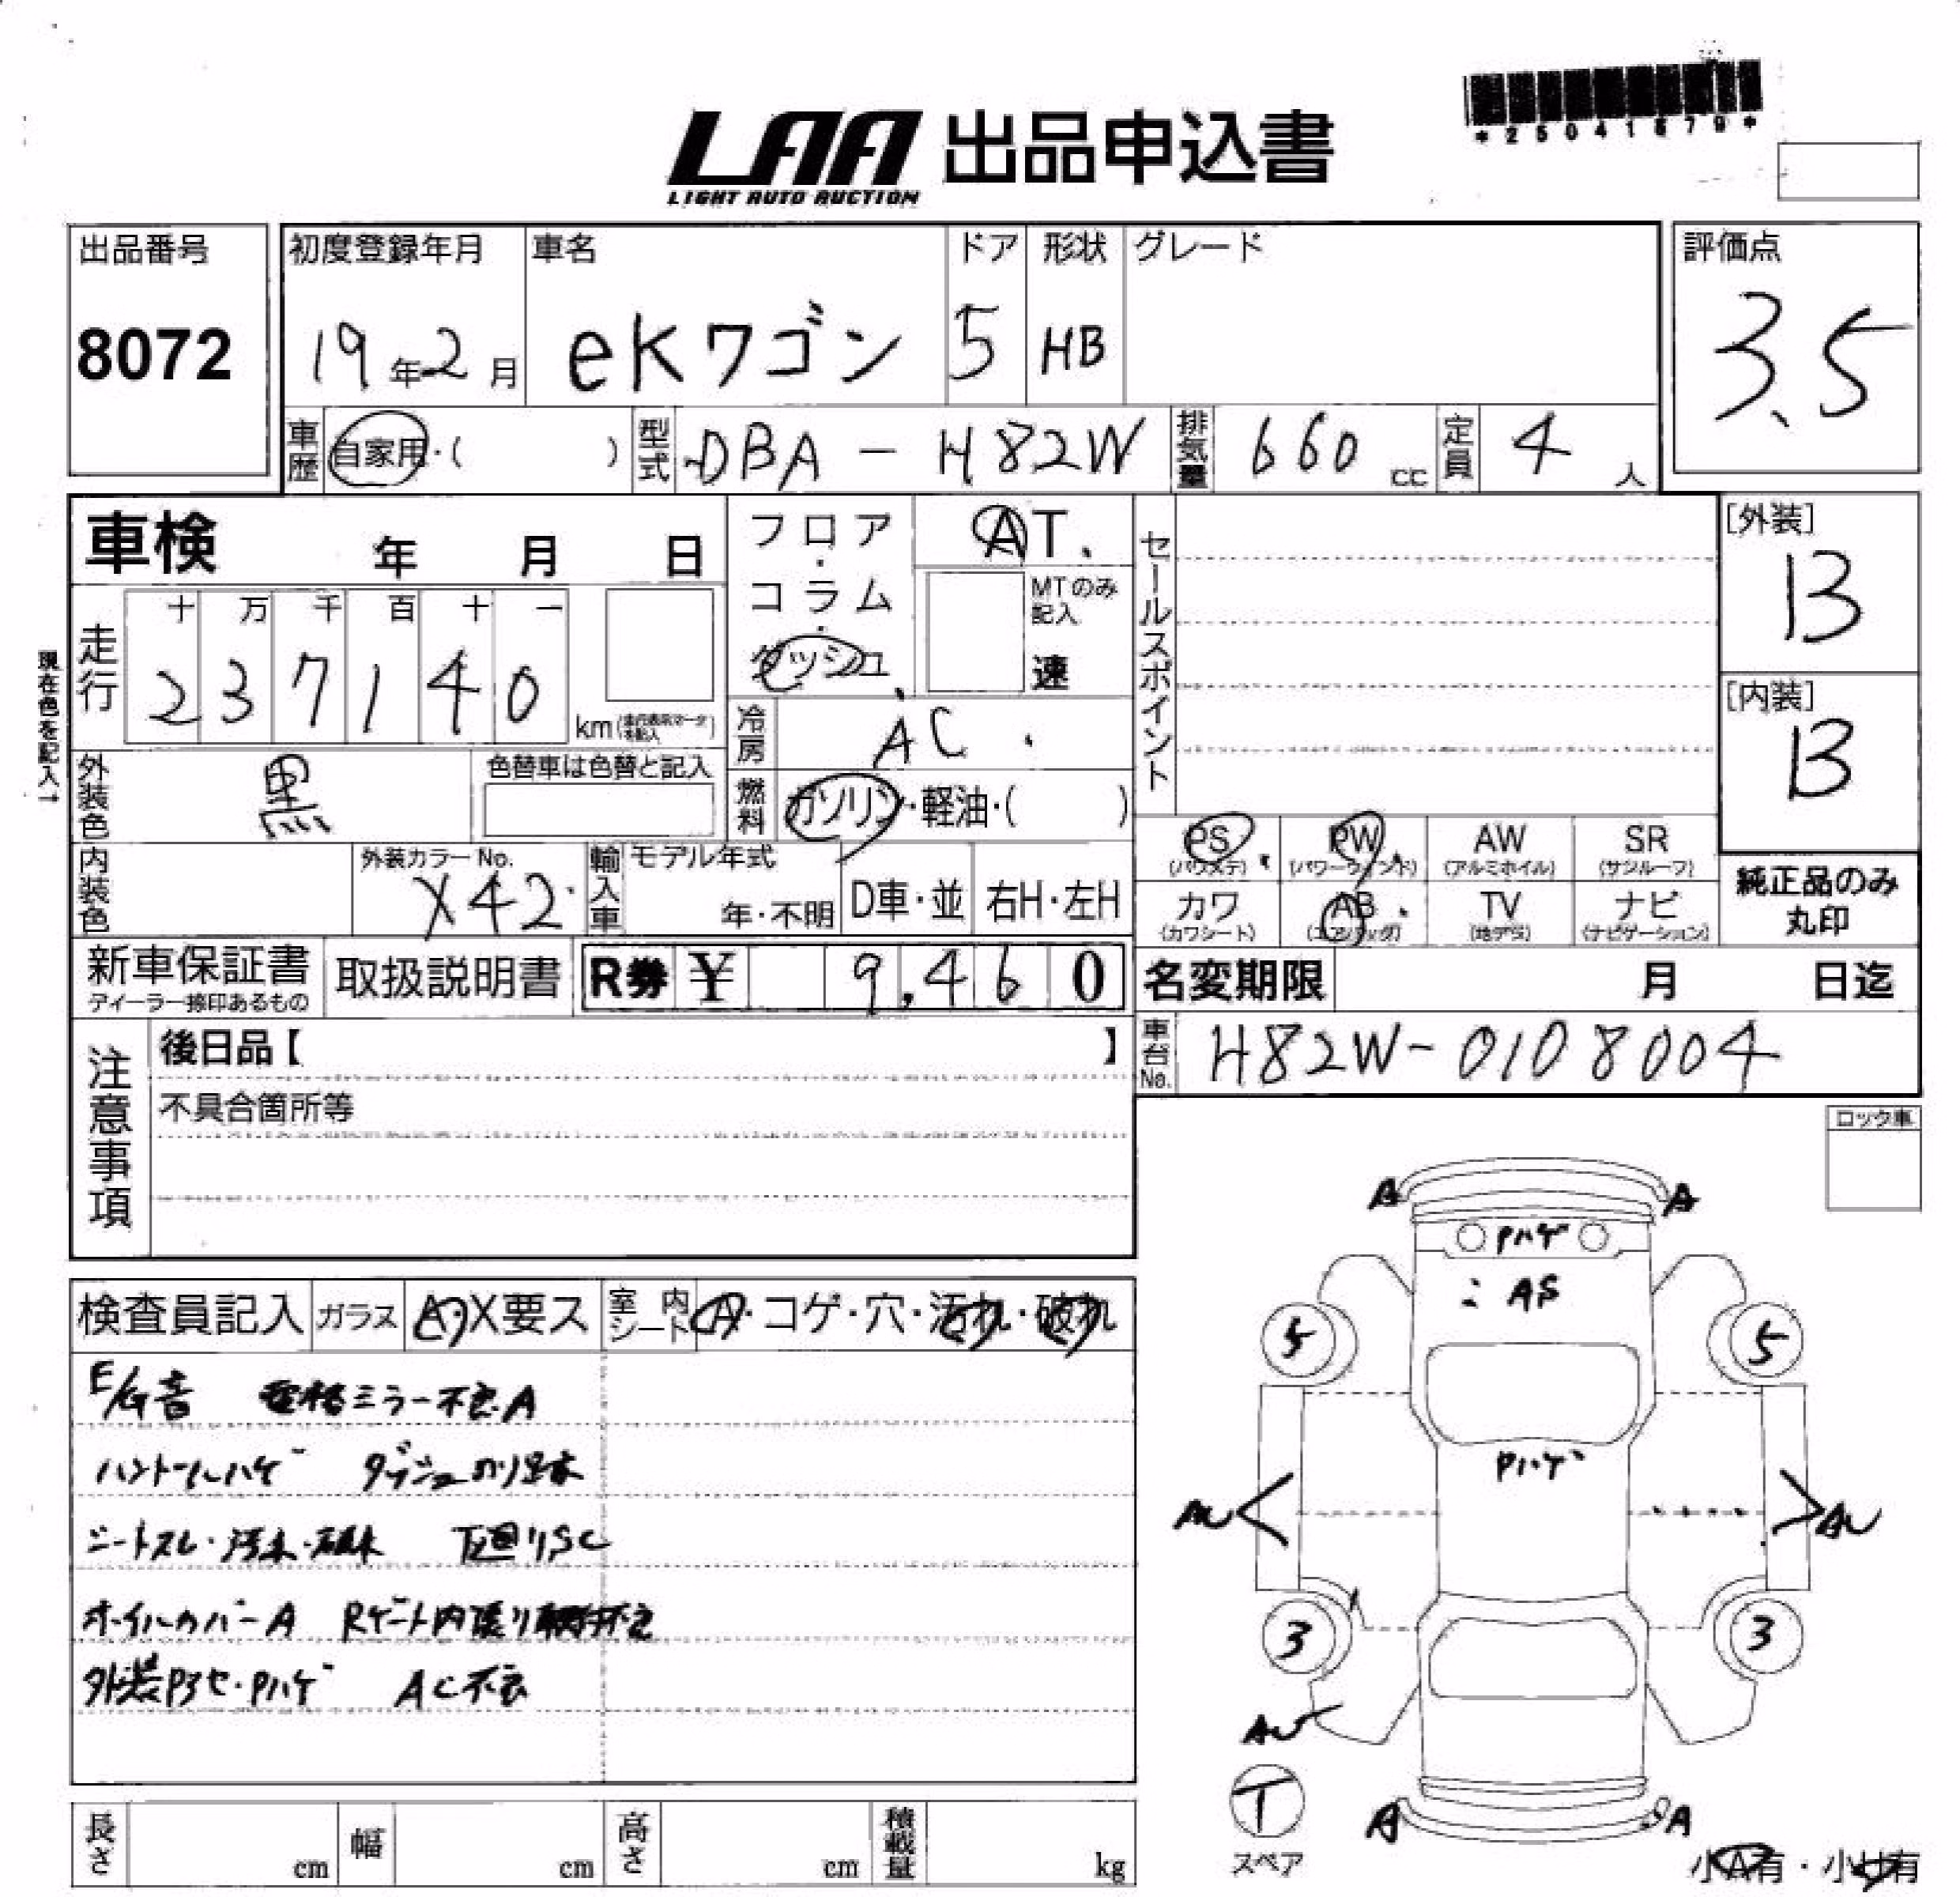 LAA 出品申込書
LIGHT AUTO AUCTION
*25041679*
出品番号 初度登録年月 車名 ドア 形状 グレード 評価点
8072 19年2月 eKワゴン 5 HB 3.5
車歴 自家用・( ) 型式 DBA-H82W 排気量 660 cc 定員 4 人
車検 年 月 日
フロア・コラム・ダッシュ AT.
MTのみ記入 速
セールスポイント
[外装] B
現在色を記入→
走行 十 万 千 百 十 一
2 3 7 1 4 0 km(走行表示マーク未記入)
冷房 AC.
[内装] B
外装色 黒 色替車は色替と記入
燃料 ガソリン・軽油・( )
PS AW SR
PW
(パワステ) (パワーウィンド) (アルミホイル) (サンルーフ)
内装色 外装カラーNo. X42 輸入車 モデル年式 年・不明 D車・並 右H・左H
カワ AB TV ナビ
(カワシート) (エアバッグ) (地デジ) (ナビゲーション)
純正品のみ丸印
新車保証書 取扱説明書 R券 ¥ 9,460
ディーラー捺印あるもの
名変期限 月 日迄
注意事項 後日品【 】
車台No. H82W-0108004
不具合箇所等
ロック車
検査員記入 ガラス A・X要ス 室内シート A・コゲ・穴・汚れ・破れ
E/G音 電格ミラー不良A
ハンドルハゲ ダッシュのり跡
シートスレ・汚れ・破れ 下廻りSC
ホイルカバーA Rゲート内張り
外装Pヤセ・Pハゲ AC不良
A A
Pハゲ
: AS
5 5
Pハゲ
AU AU
3 3
AU
T
スペア
A A
小A有・小U有
長さ cm 幅 cm 高さ cm 積載量 kg